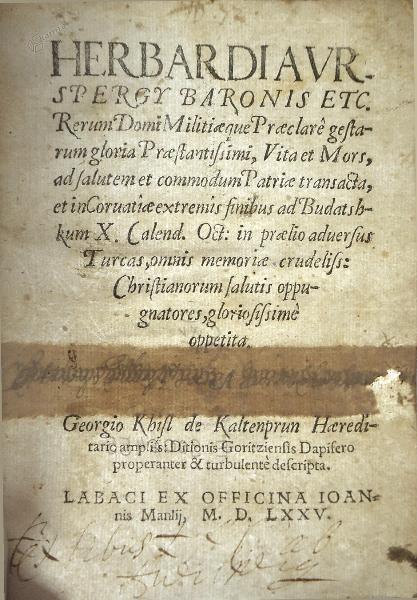 HERBARDI AVR-
SPERGY BARONIS ETC.
Rerum Domi Militiæque Præclarê gesta-
rum gloria Præstantissimi, Vita et Mors,
ad salutem et commodum Patriæ transacta,
et in Coruatiæ extremis finibus ad Budatsh-
kum X. Calend. Oct: in prælio aduersus
Turcas, omnis memoriæ crudeliss:
Christianorum salutis oppu-
gnatores, gloriosissimè
oppetita.
Georgio Khisl de Kaltenprun Hæredi-
tario ampliss: Ditionis Goritziensis Dapifero
properanter & turbulentè descripta.
LABACI EX OFFICINA IOAN-
nis Manlij, M. D. LXXV.